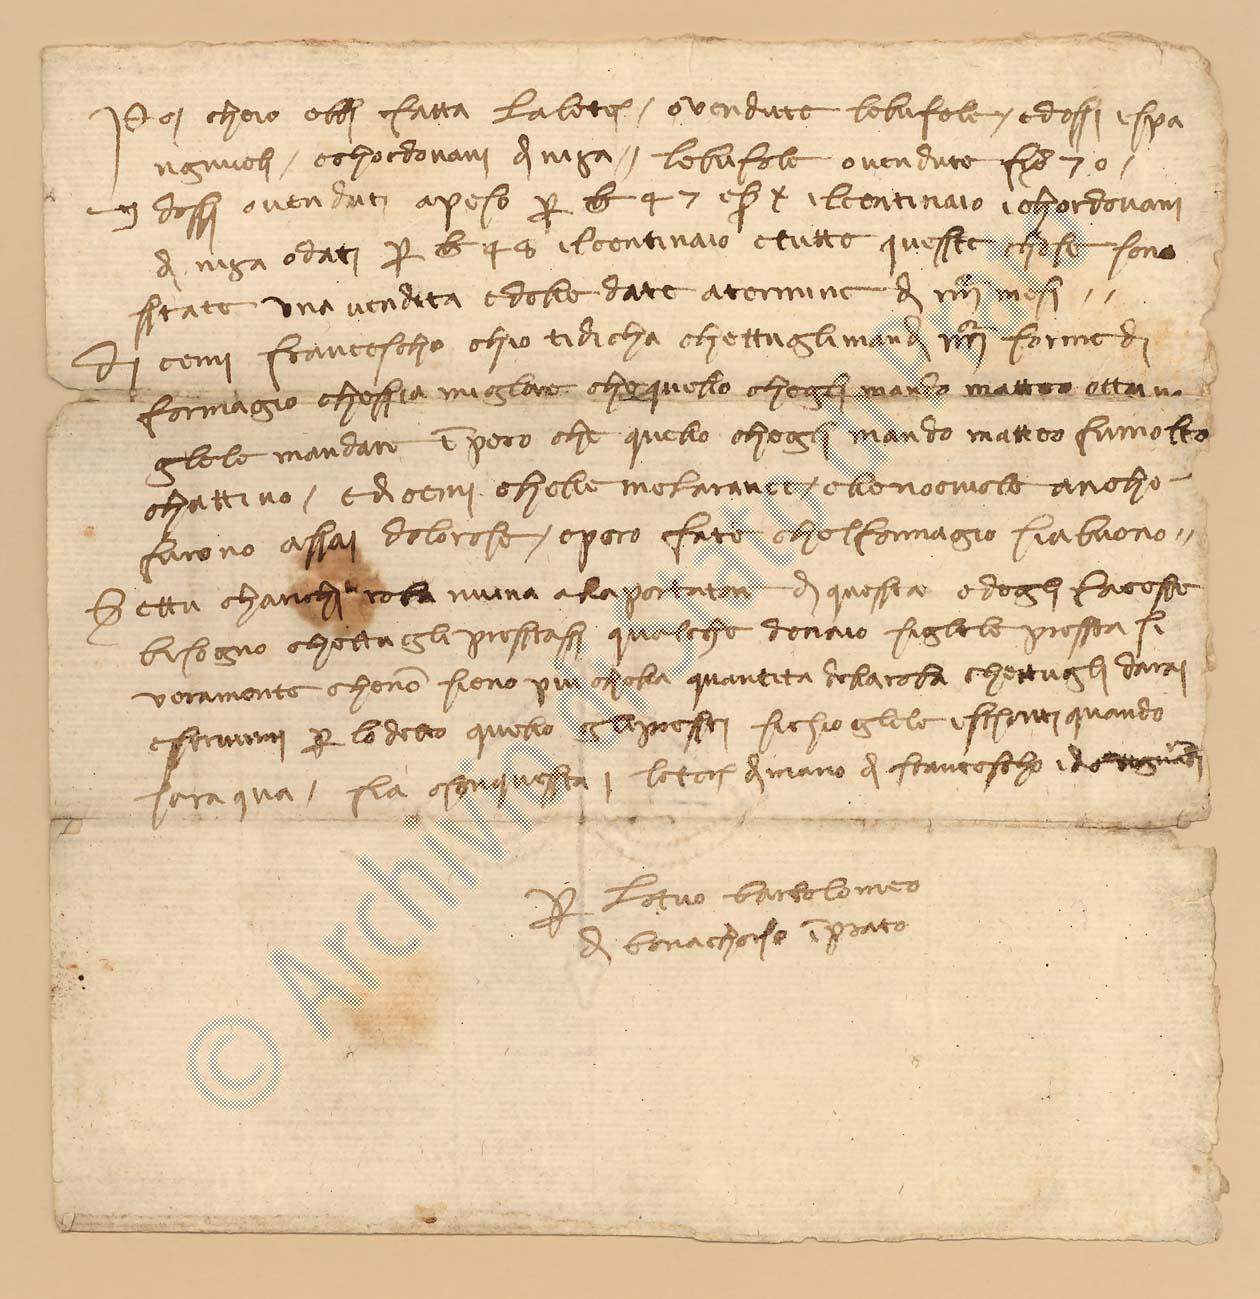 Poi cheio ebbi fatta la letera / o vendute le bufole / e dossi ispa
ngniuoli / e chordovani di niza // le bufole o vendute fio 70 /
dossi o venduti a peso per lb 47 e s x il centinaio i chordovani
di niza o dati per lb 48 il centinaio e tutte queste chose sono
state una vendita e dolle date a termine di iiii mesi //
Dicemi franceschо ch'io ti dicha chettu gli mandi forme di
formagio chessia migliore che quello che gli mando matteo o ttu no
gle le mandare in pero che quello che gli mando matteo fu molto
chattivo / e dicemi che lle melarance / e lle nociuole ancho
furono assai dolorose / e pero fate che 'l formagio sia buono //
Settu charichi roba niuna a la portatore di questa e degli facesse
bisogno chettu gli prestassi qualche denaio si gle le presta si
veramente che non sieno piu che lla quantita de la roba chettu gli darai
e scrivimi per lo detto quello gli presti sich'io gle le ischonti quando
sara qua / sia chon questa i letera di mano di franceschо
per Lotuo bartolomeo
di bonachorso in prato
© Archivio di Stato di Prato